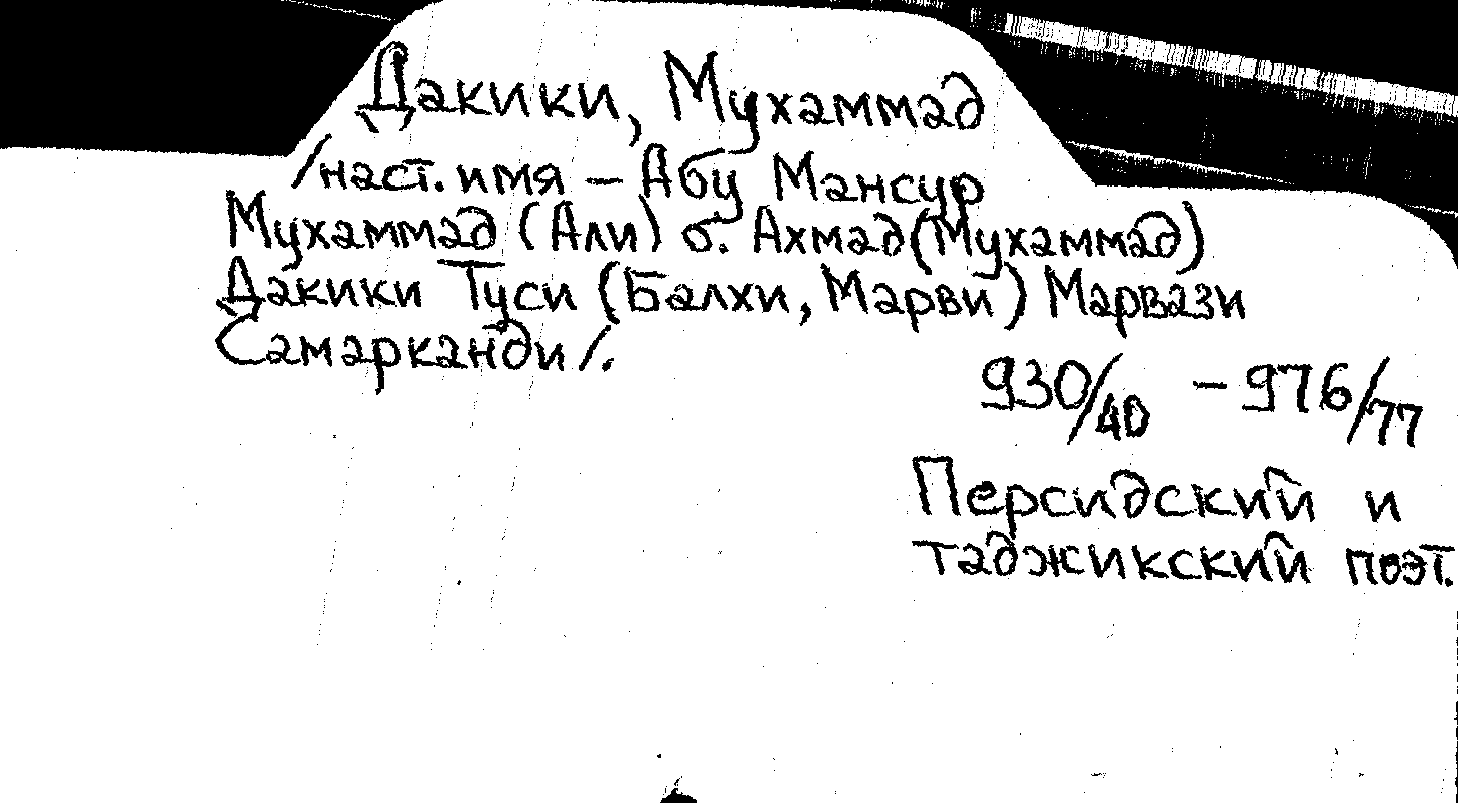 Дакики, Мухаммад
/наст. имя – Абу Мансур
Мухаммад (Али) б. Ахмад (Мухаммад)
Дакики Туси (Балхи, Марви) Марвази
Самарканди/.
930/40 – 976/77
Персидский и
таджикский поэт.